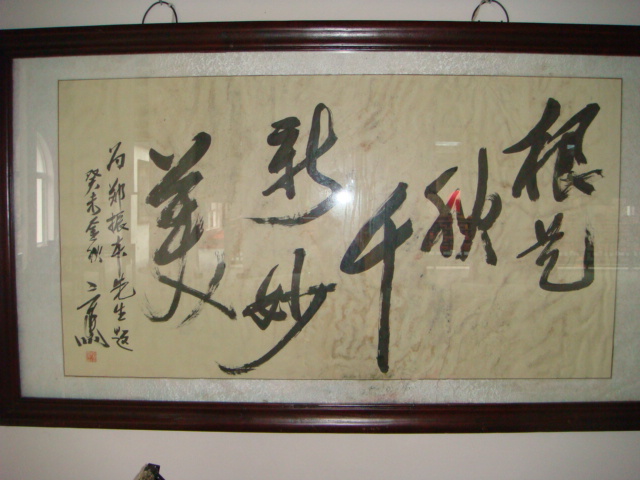 根艺
秋
千
新妙
美
为郑振本先生题
癸未金秋